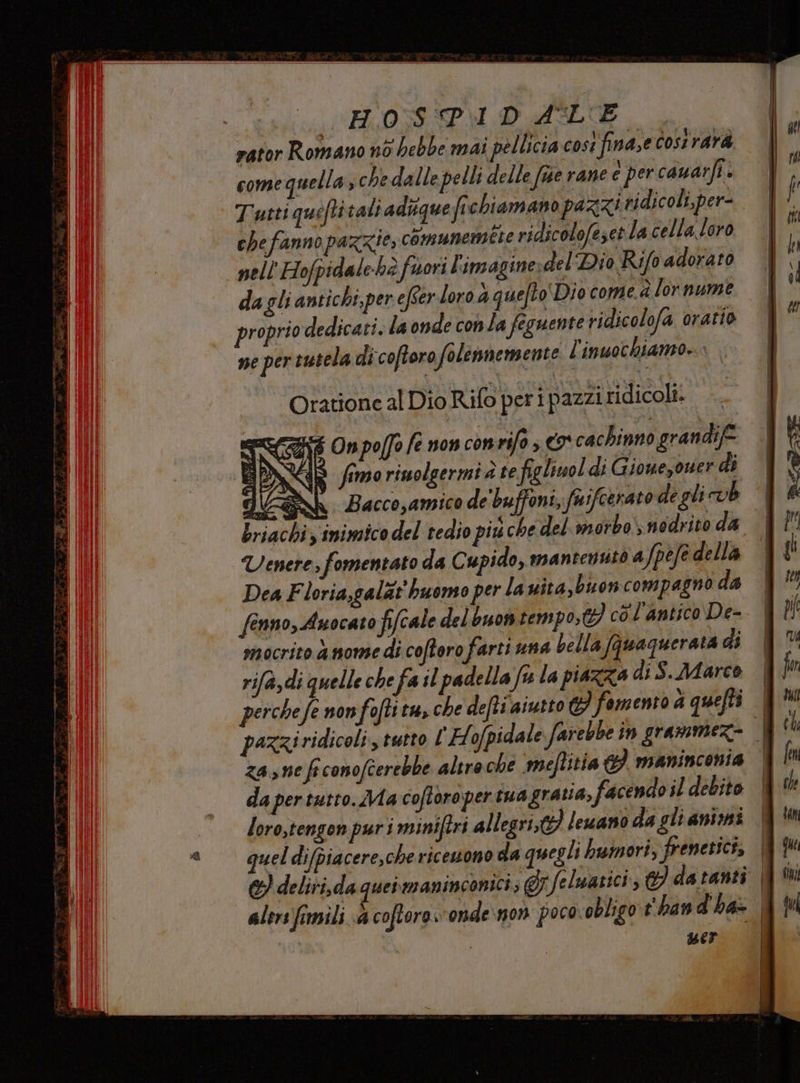 HOSPIDALE
rator Romano nõ hebbe mai pellicia così fina, e così rara
come quella, che dalle pelli delle sue rane è per cauarsi.
Tutti questi tali adũque si chiamano pazzi ridicoli, per-
che fanno pazzie, cõmunemẽte ridicolose, et la cella loro
nell' Hospidale hà fuori l'imagine del Dio Riso adorato
da gli antichi, per esser loro à questo Dio come à lor nume
proprio dedicati. la onde con la seguente ridicolosa oratio
ne per tutela di costoro solennemente l'inuochiamo.
Oratione al Dio Riso per i pazzi ridicoli.
On posso se non con riso, & cachinno grandis-
simo riuolgermi à te figliuol di Gioue, ouer di
Bacco, amico de' buffoni, suiscerato de gli vb
briachi, inimico del tedio più che del morbo, nodrito da
Venere, fomentato da Cupido, mantenuto a spese della
Dea Floria, galãt' huomo per la uita, buon compagno da
senno, Auocato fiscale del buon tempo, & cõ l'antico De-
mocrito à nome di costoro farti una bella squaquerata di
risa, di quelle che fa il padella su la piazza di S. Marco
perche se non fosti tu, che desti aiutto & fomento à questi
pazzi ridicoli, tutto l'Hospidale sarebbe in grammez-
za, ne si conoscerebbe altro che mestitia & maninconia
da per tutto. Ma costoro per tua gratia, facendo il debito
loro, tengon puri ministri allegri, & leuano da gli animi
quel dispiacere, che riceuono da quegli humori, frenetici,
& deliri, da quei maninconici, & seluatici, & da tanti
altri simili à costoro. onde non poco obligo t'han d'ha-
uer